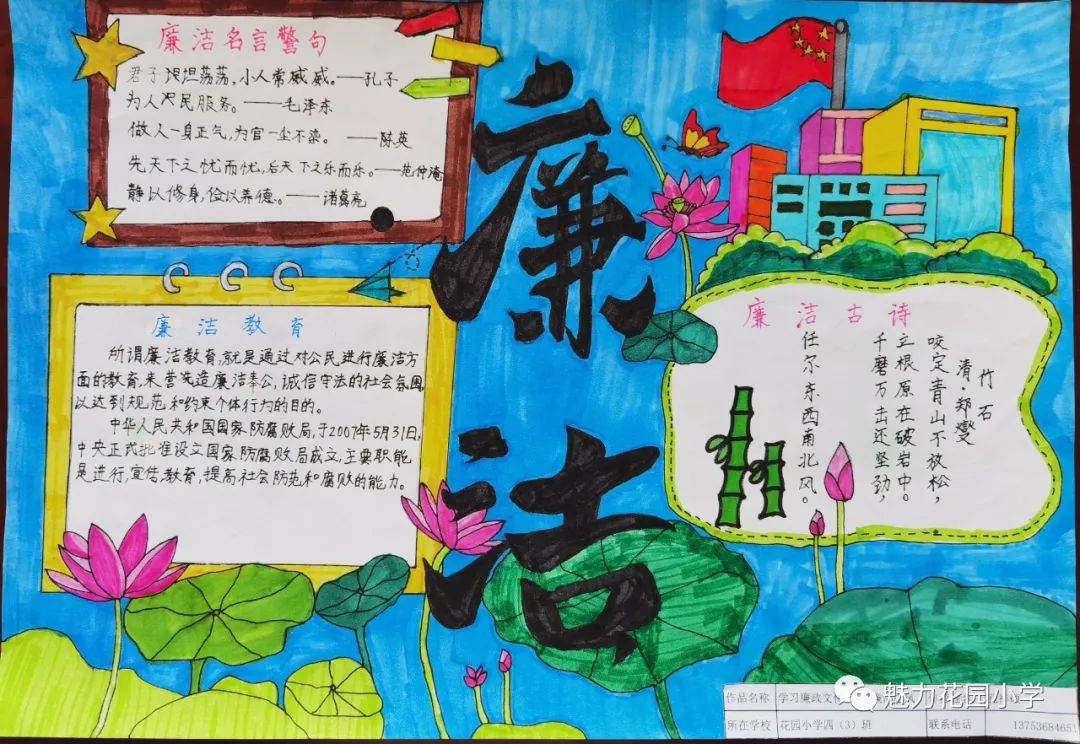 廉洁名言警句
君子坦坦荡荡,小人常戚戚。——孔子
为人民服务。——毛泽东
做人一身正气,为官一尘不染。——陈英
先天下之忧而忧,后天下之乐而乐。——范仲淹
静以修身,俭以养德。——诸葛亮
廉洁
廉洁教育
所谓廉洁教育,就是通过对公民进行廉洁方
面的教育,来营造廉洁奉公,诚信守法的社会氛围,
以达到规范和约束个体行为的目的。
中华人民共和国国家防腐败局,于2007年5月31日,
中央正式批准设立国家防腐败局成立,主要职能
是进行,宣传教育,提高社会防范和腐败的能力。
廉洁古诗
竹石
清·郑燮
咬定青山不放松,
立根原在破岩中。
千磨万击还坚劲,
任尔东西南北风。
作品名称 学习廉政文
所在学校 花园小学四(3)班 联系电话 13753684651
魅力花园小学